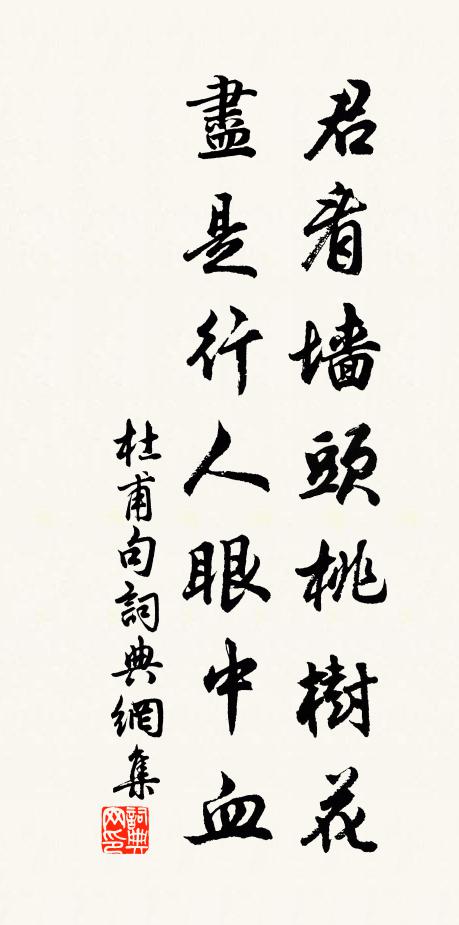 君看墙頭桃樹花
盡是行人眼中血
杜甫句詞典網集
詞典网印